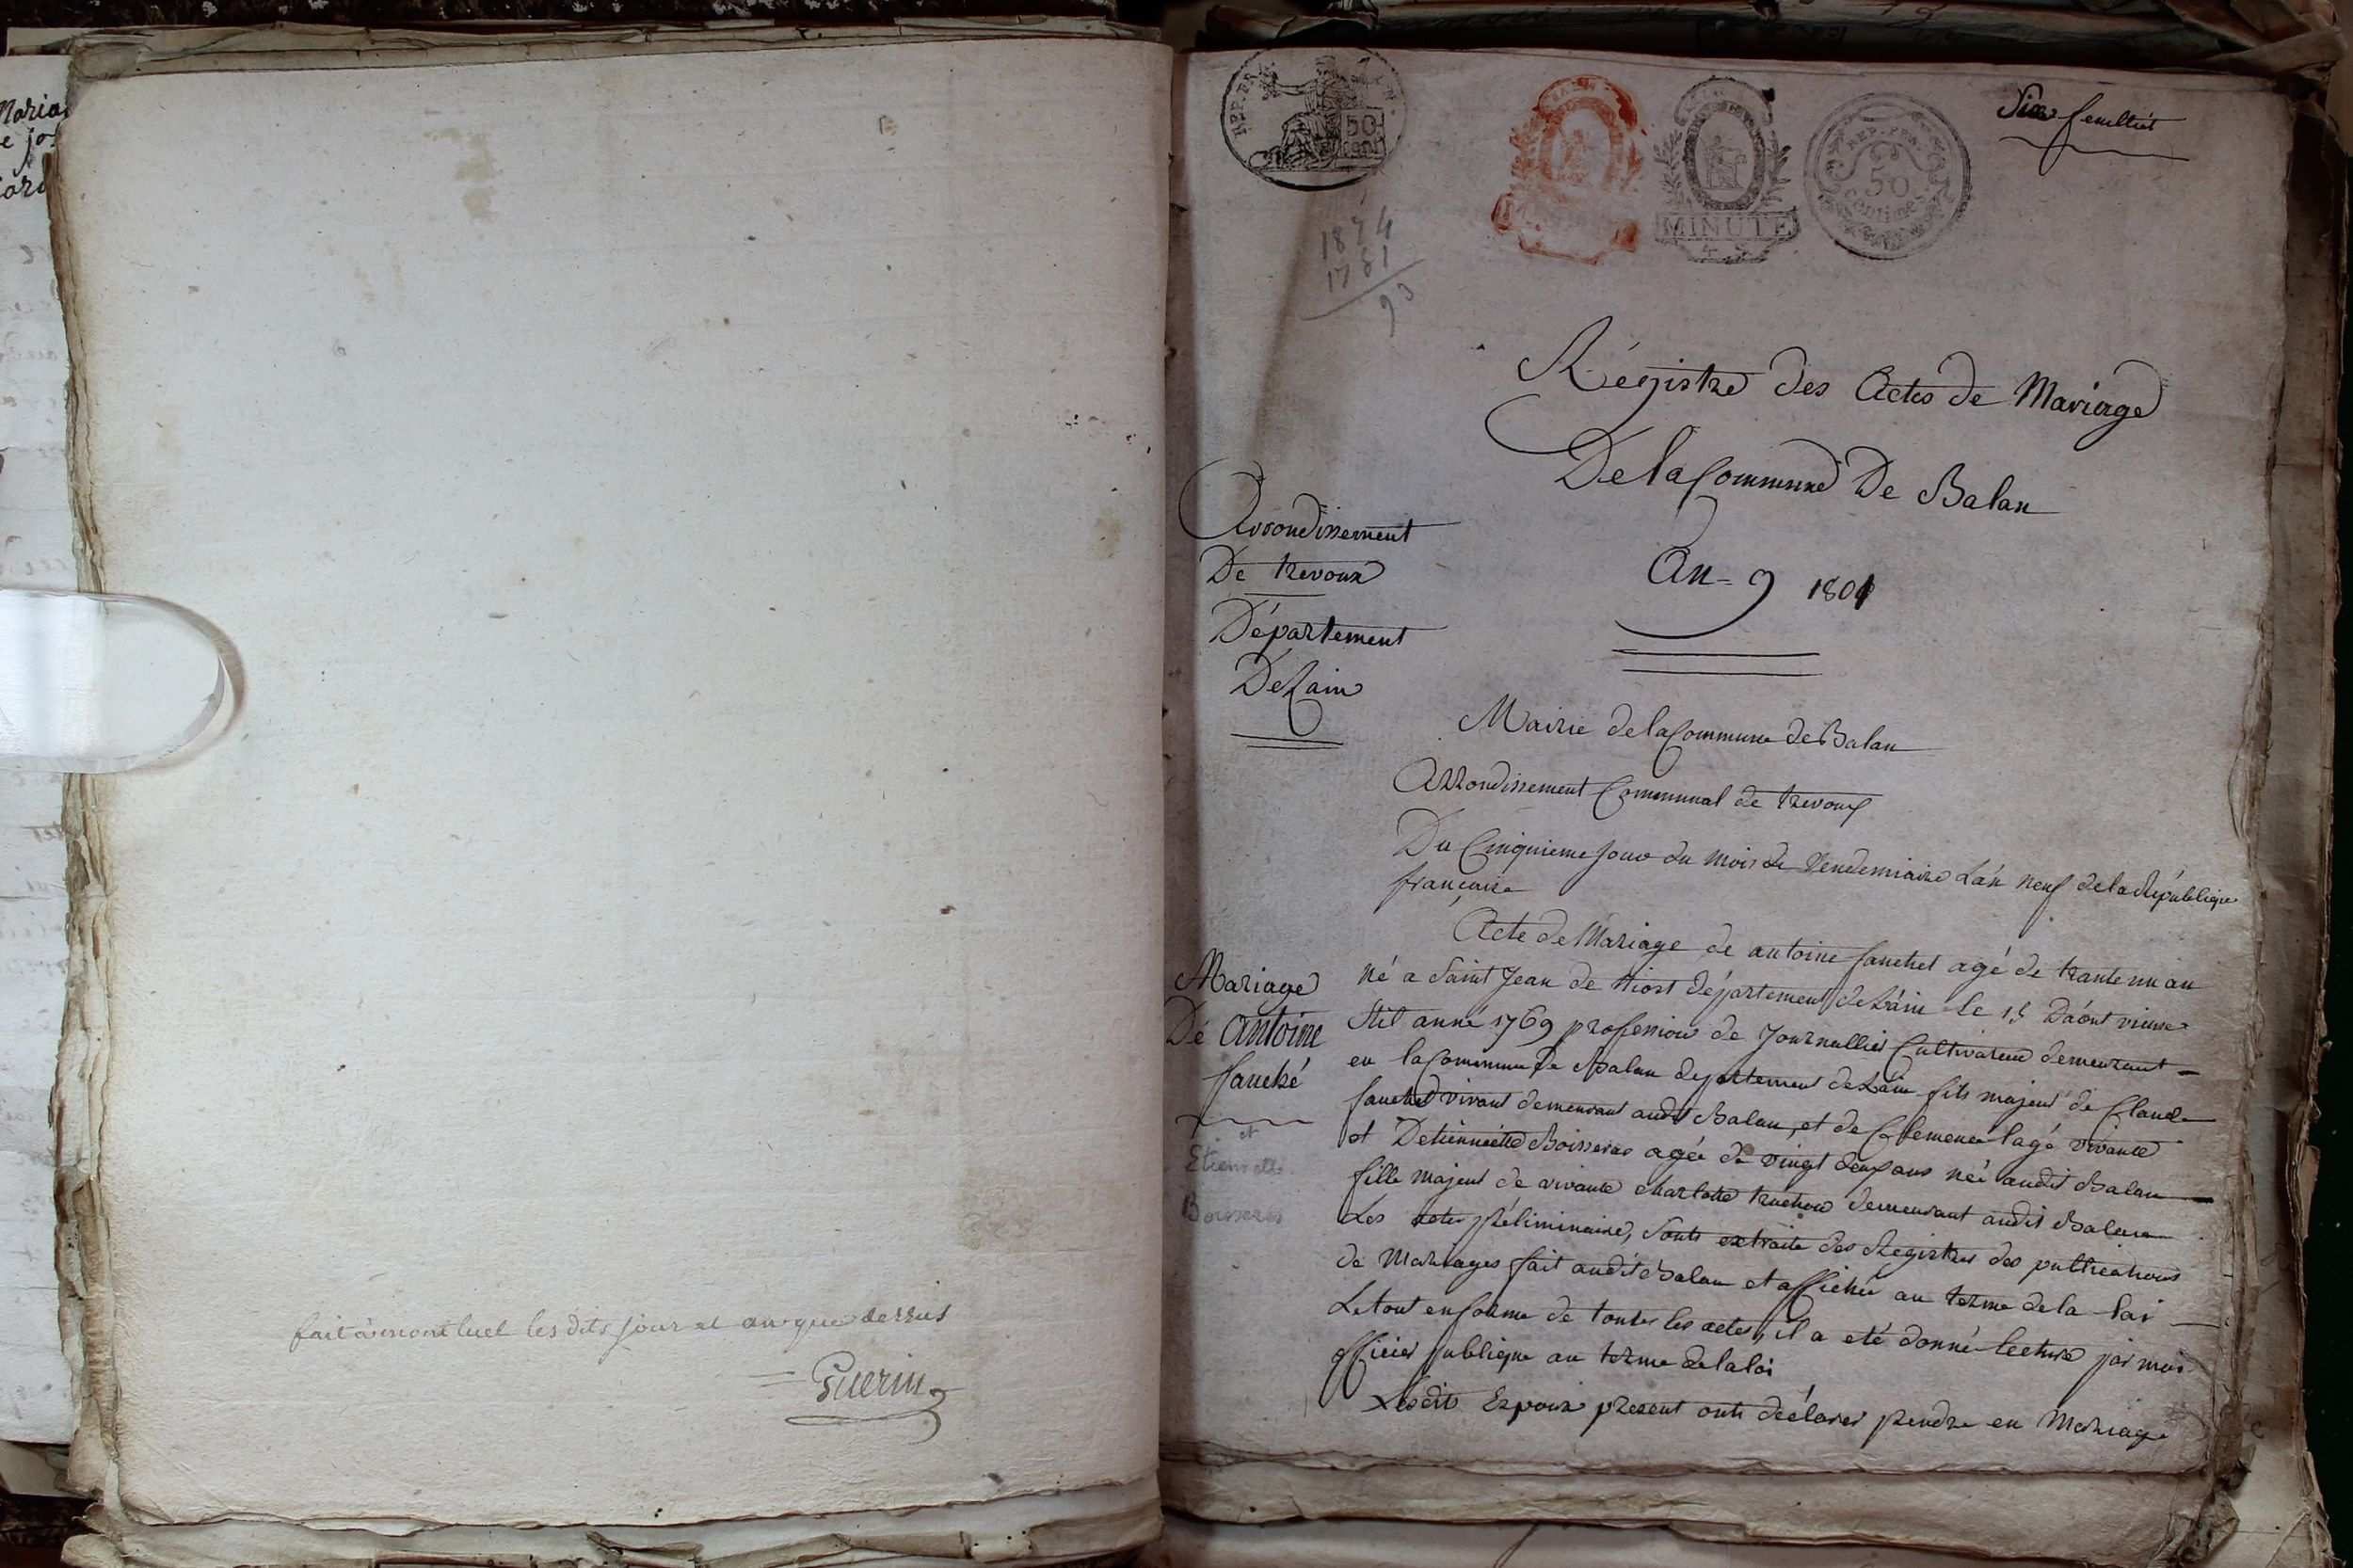 Maria
e jo
fait à montluel les dits jour et an que dessus
Guerin
REP. FRA.
50
cent
MINUTE
REP. FRA.
50
Centimes
Six feuillet
1874
1781
93
Régistre des Actes de Mariage
De la Commune De Balan
An = 9 1801
Arrondissement
De trevoux
Département
De Lain
Mairie de la Commune de Balan
Arrondissement Communal de trevoux
Du Cinquieme jour du mois de Vendemiaire L'an neuf de la République
française
Mariage
De Antoine
fauché
et
Etiennette
Boisseras
Acte de Mariage de antoine fauchet agé de trante un an
né a Saint Jean de Niost département de L'ain le 15 D'août vieux
Stil anné 1769 profession de Journallier Cultivateur demeurant
en la Commune De Balan departement de L'ain fils majeur de Claude
fauchet vivant demeurant audit Balan, et de Clemence lagé vivante
et Detiennette Boisseras agée de vingt deux ans né audit Balan
fille majeur de vivante charlotte truchon demeurant audit Balan
Les actes préliminaire, sonts extraite des Registres des publications
de Mariages fait audit Balan et affichée au terme de la Loi
Le tout en forme de toutes les actes, il a eté donné lecture par moi
officier publique au terme de la loi
Lesdits Expoux present onts déclarer prendre en Mariage